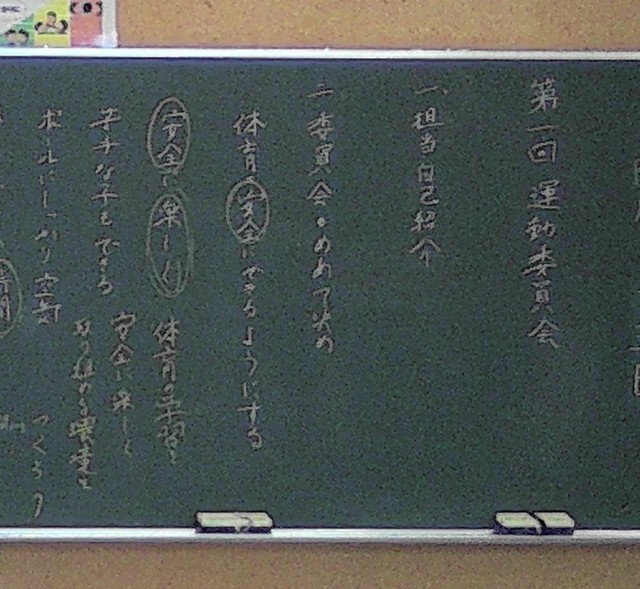 第一回 運動委員会
一、担当自己紹介
二 委員会のめあて決め
体育 安全にできるようにする
安全に楽しく 体育の学習を
苦手な子もできる 安全に楽しく
取り組める環境を
ボールにしっかり空気
つくろう